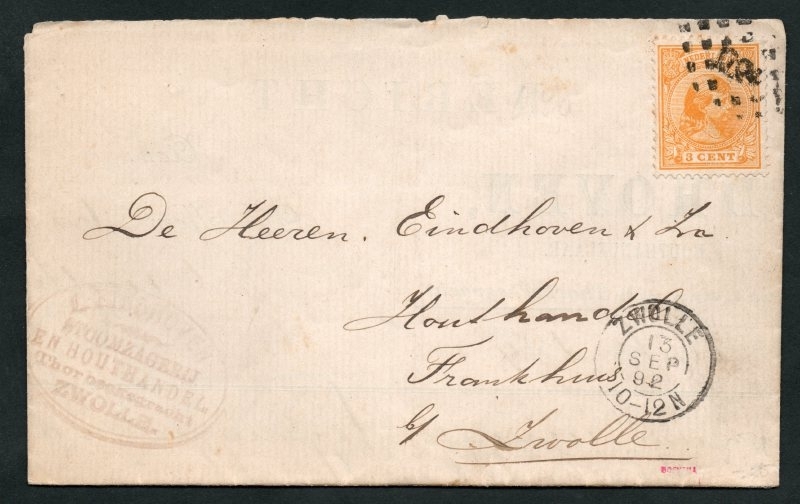 NEDERLAND
3 CENT
De Heeren. Eindhoven & Zn
Houthandel
Frankhuis
b/ Zwolle
ZWOLLE
13
SEP
92
10-12N
STOOMZAGERIJ
EN HOUTHANDEL
ZWOLLE